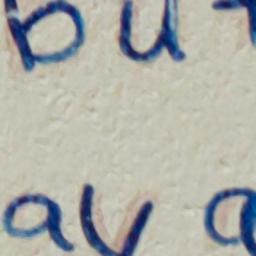 but
av a